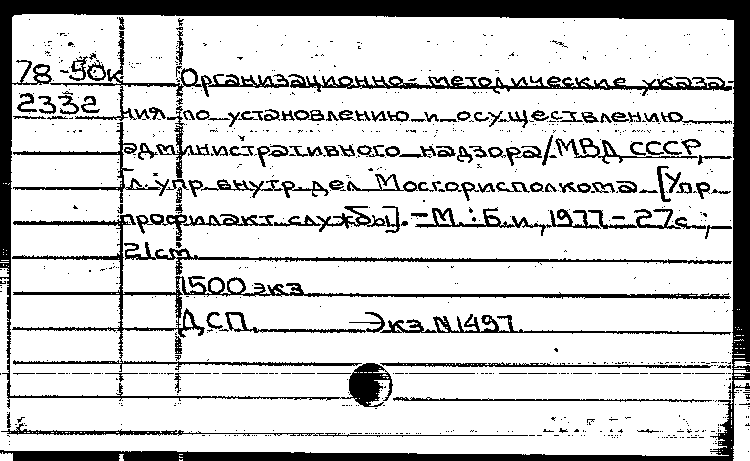 78-50к Организационно-методические указа-
2332 ния по установлению и осуществлению
административного надзора/МВД СССР,
Гл. упр. внутр. дел Мосгорисполкома. [Упр.
профилакт. службы]. – М. : Б.и., 1977 – 27с ;
21cm.
1500 экз
ДСП. Экз. N 1497.